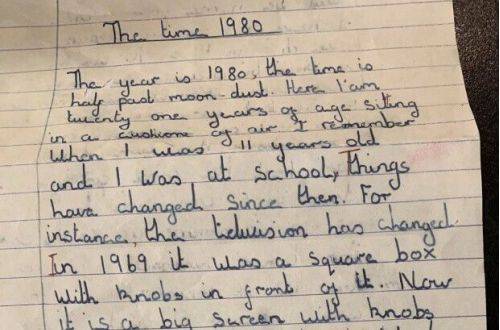 The time 1980
The year is 1980, the time is
half past moon-dust. Here I'am
twenty one years of age sitting
in a cushione of air I remember
When I was 11 years old
and I was at school, Things
have changed since then. For
instance, the television has changed.
In 1969 it was a square box
with knobs in front of it. Now
it is a big screen with knobs